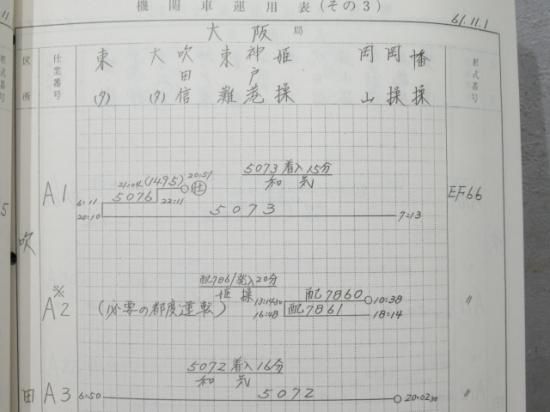 機関車運用表(その3)
61.11.1
11
大阪局
区所
仕業番号
東(タ)
大(タ)
吹田信
東灘
神戸港
姫操
岡山
岡操
幡操
形式番号
5073着入15分
和気
(1495) 20:51
5076
22:11
A1
6:11
5073
7:13
EF66
5
吹
20分
姫操
配7860
10:38
※
A2
(必要の都度運転)
16:48
配7861
18:14
〃
5072着入16分
和気
田
A3
6:50
5072
20:02
〃